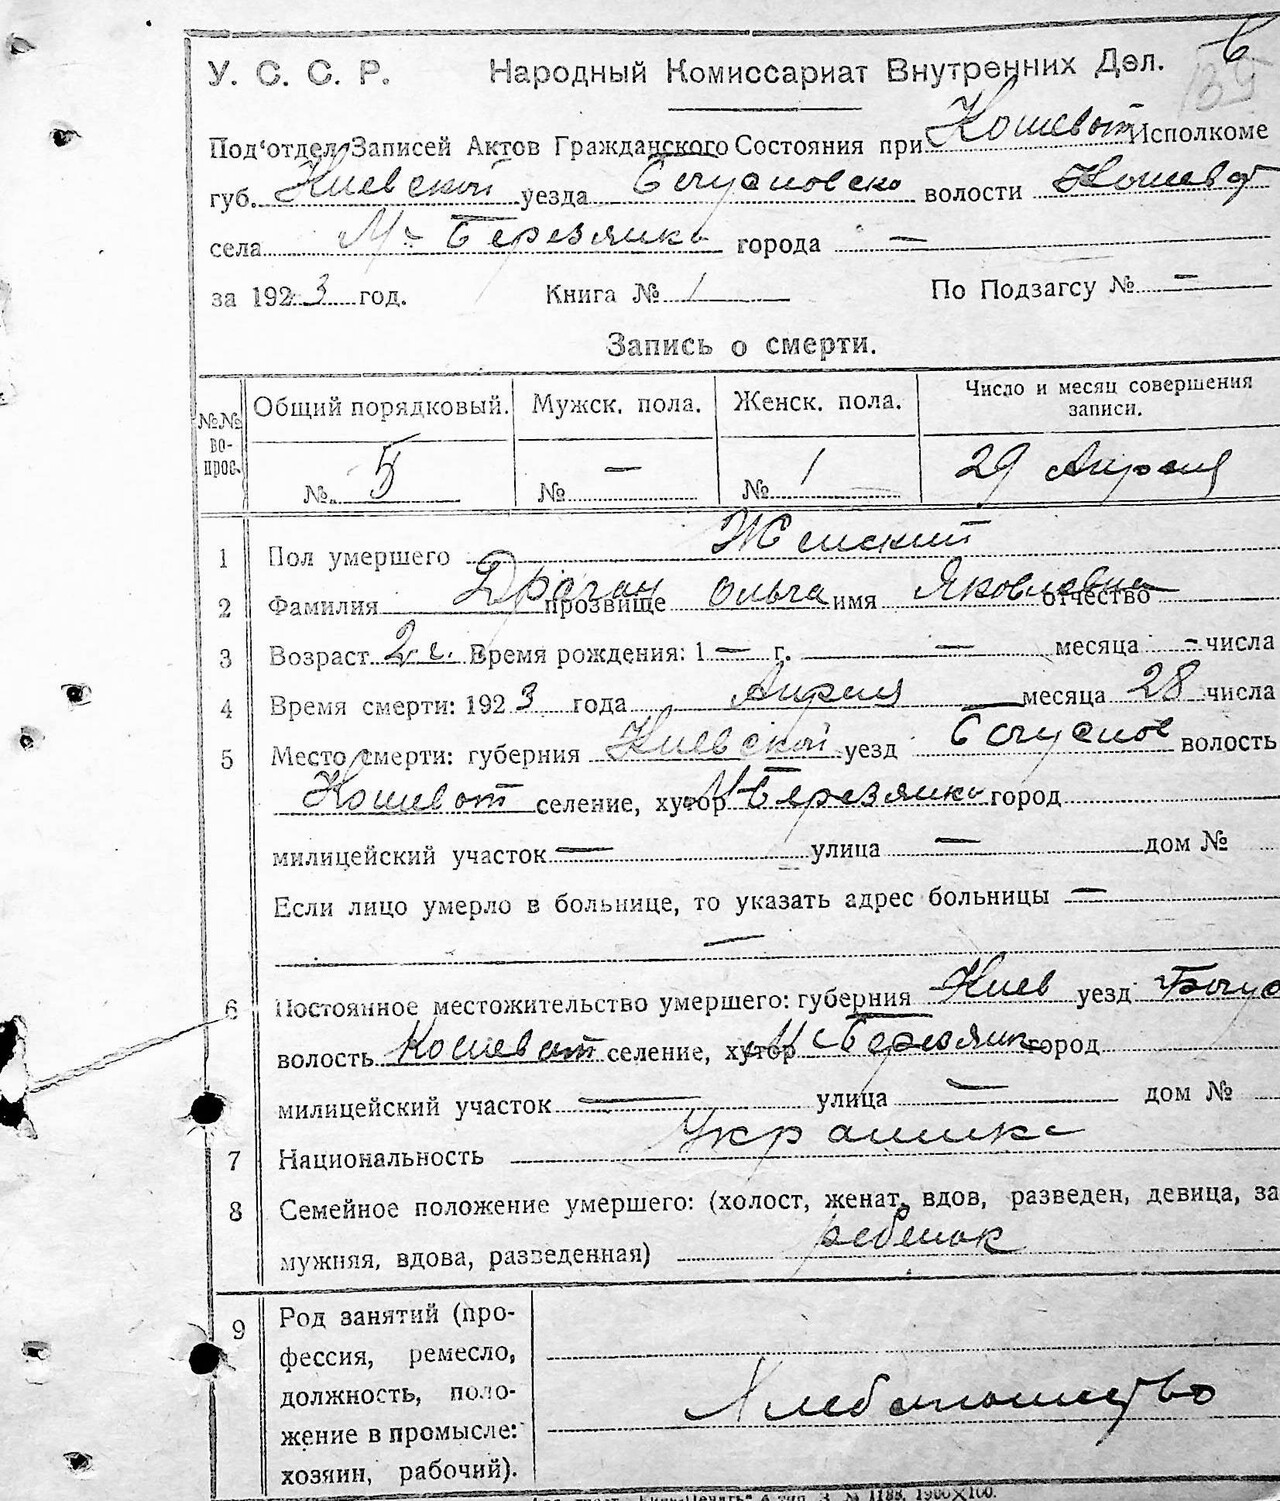 6
135
У. С. С. Р. Народный Комиссариат Внутренних Дел.
Под'отдел Записей Актов Гражданского Состояния при Кошеват Исполкоме
губ. Киевской уезда Богуславско волости Кошеват
села М. Березянка города —
за 1923 год. Книга № 1 По Подзагсу № —
Запись о смерти.
№№ вопрос. Общий порядковый. Мужск. пола. Женск. пола. Число и месяц совершения записи.
№ 5 № — № 1 29 Апреля
1 Пол умершего Женский
2 Фамилия Драган прозвище Ольга имя Яковлевна отчество
3 Возраст 2 г. Время рождения: 1 — г. — месяца - числа
4 Время смерти: 1923 года Апреля месяца 28 числа
5 Место смерти: губерния Киевской уезд Богуслав волость
Кошеват селение, хутор М Березянка город
милицейский участок — улица — дом №
Если лицо умерло в больнице, то указать адрес больницы —
—
6 Постоянное местожительство умершего: губерния Киев уезд Богус
волость Кошеват селение, хутор М Березянк город
милицейский участок — улица — дом №
7 Национальность Украинка
8 Семейное положение умершего: (холост, женат, вдов, разведен, девица, за
мужняя, вдова, разведенная) ребенок
9 Род занятий (про-
фессия, ремесло,
должность, поло-
жение в промысле: Хлебопашество
хозяин, рабочий).
№ 1188. 1900×100.